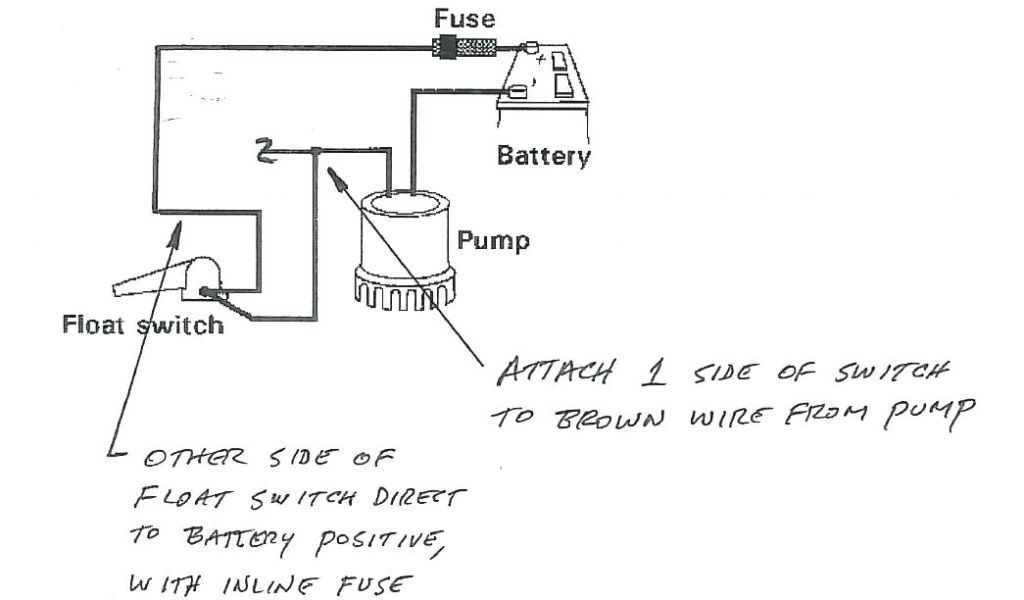 Fuse
+
-
Battery
2
Pump
Float switch
ATTACH 1 SIDE OF SWITCH
TO BROWN WIRE FROM PUMP
OTHER SIDE OF
FLOAT SWITCH DIRECT
TO BATTERY POSITIVE,
WITH INLINE FUSE